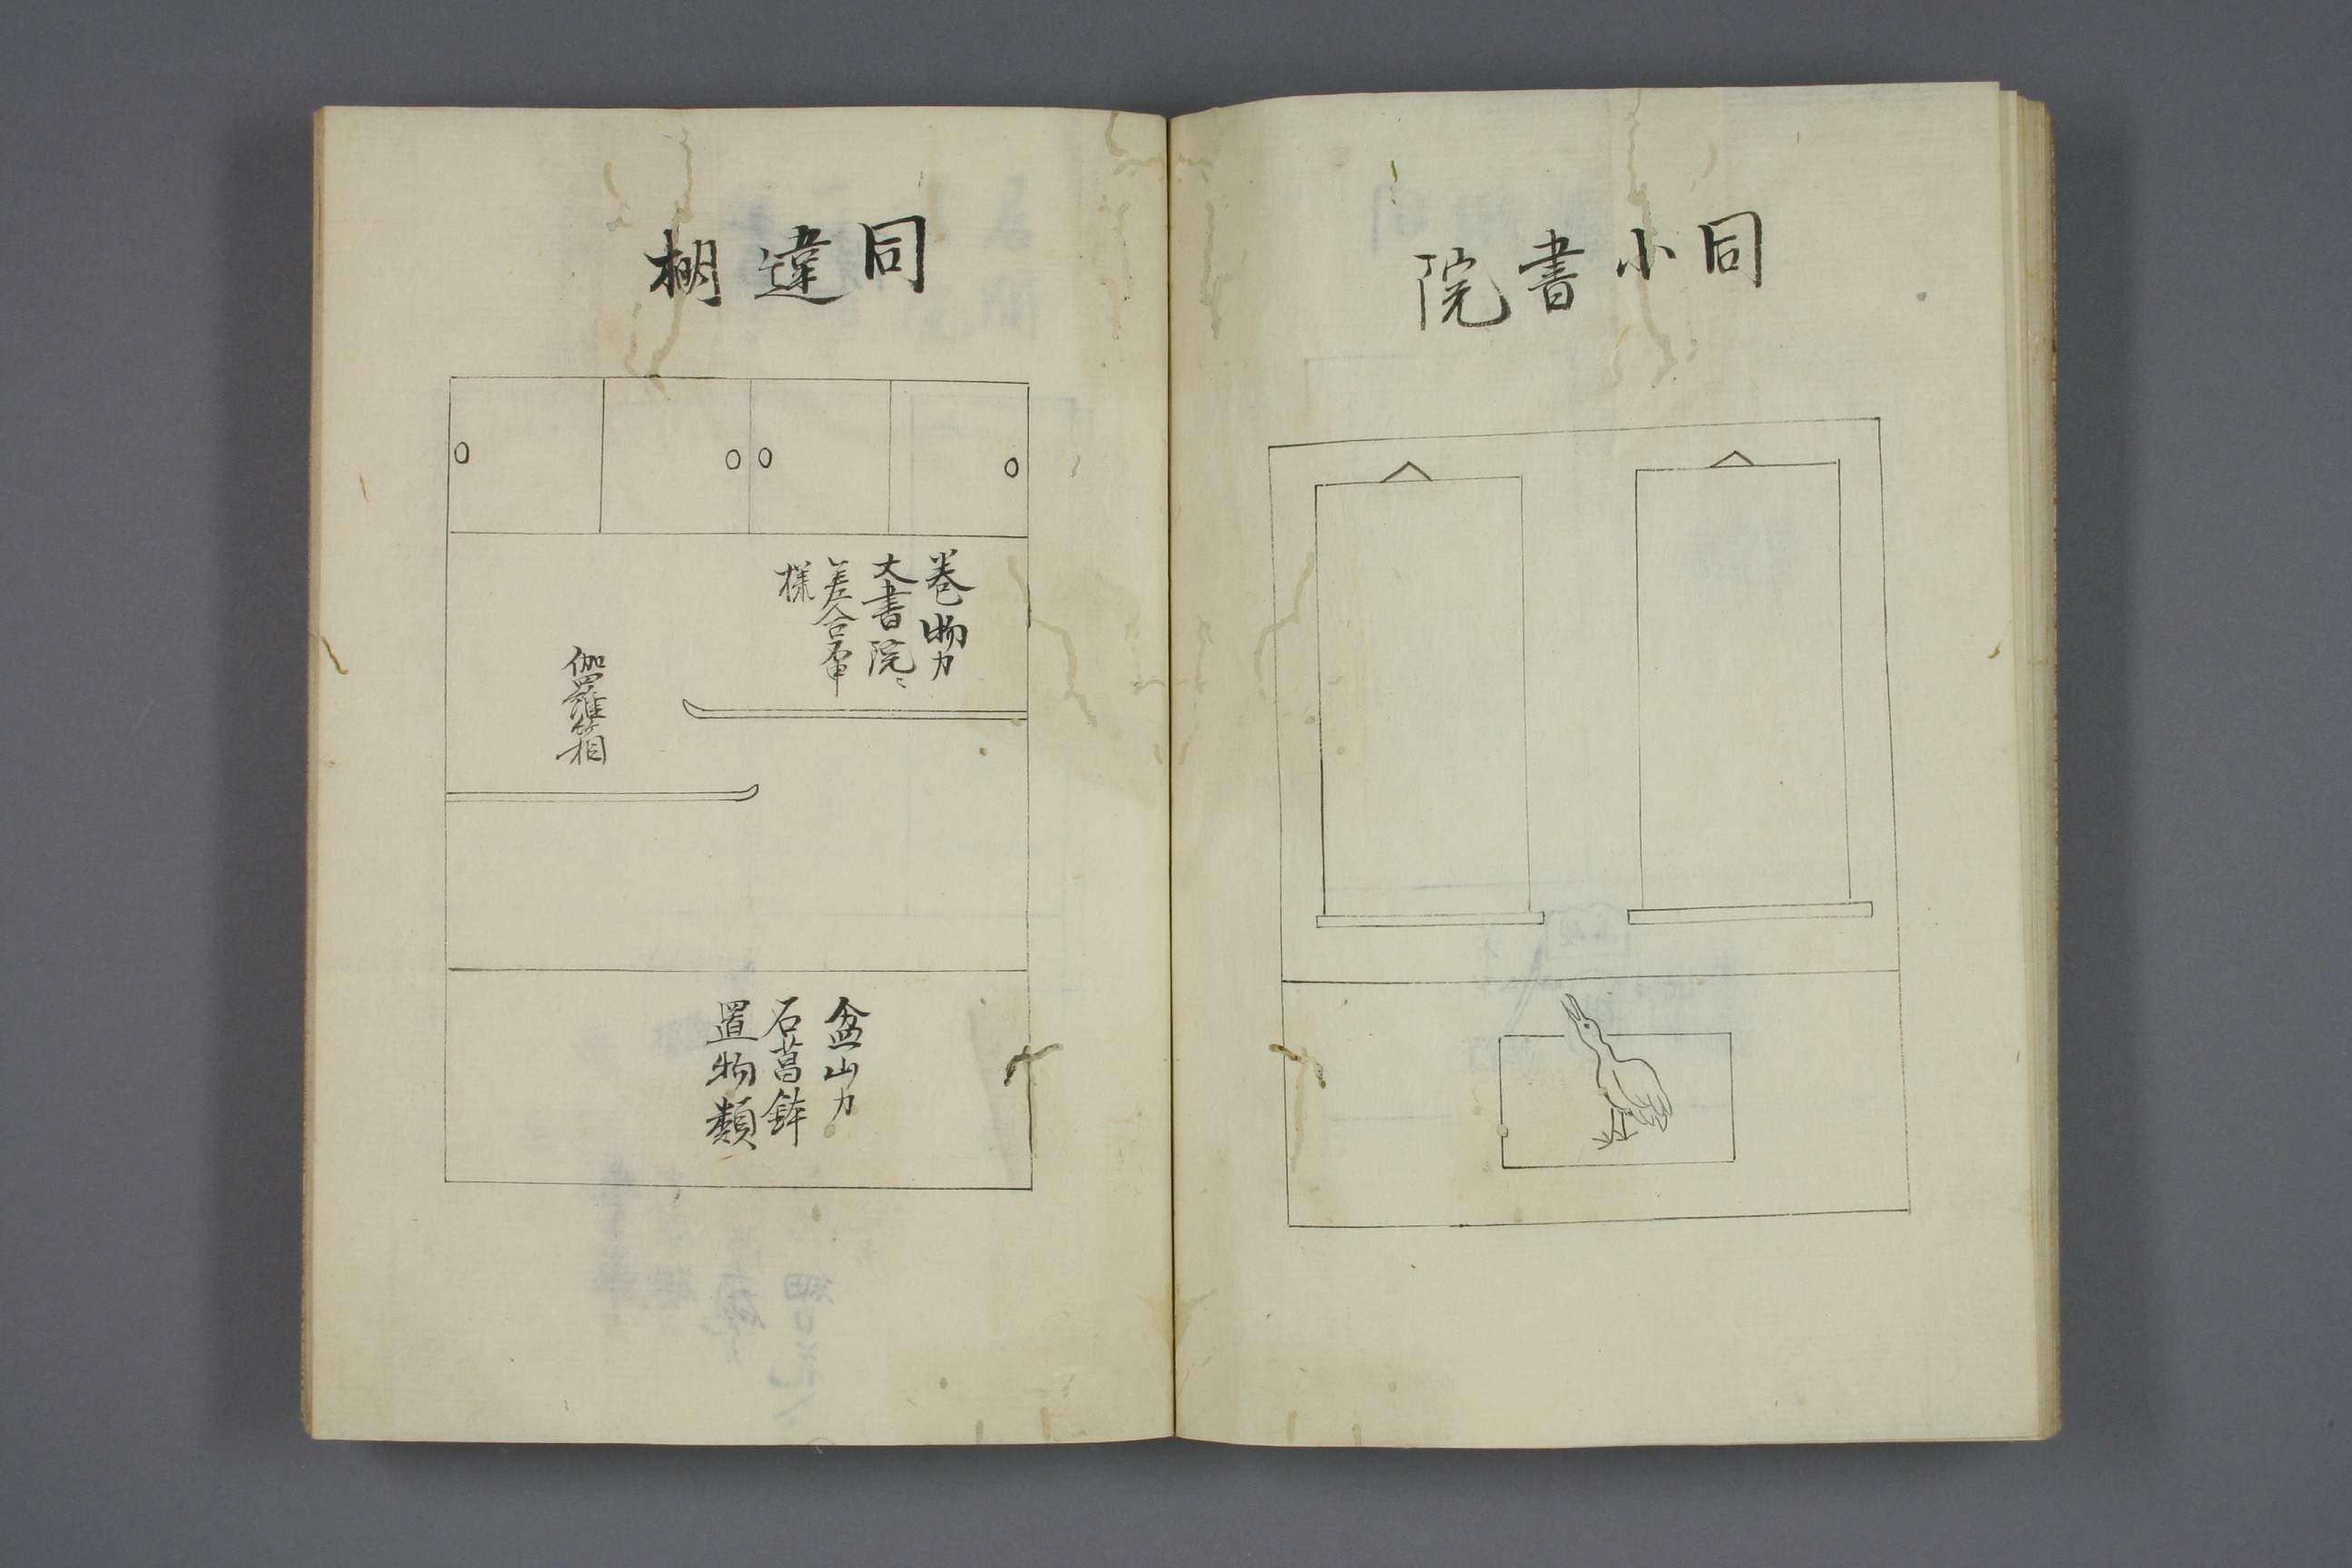 同小書院
同違棚
巻物カ
大書院ニ
差合不申
様
伽羅箱
盆山カ
石菖鉢
置物類